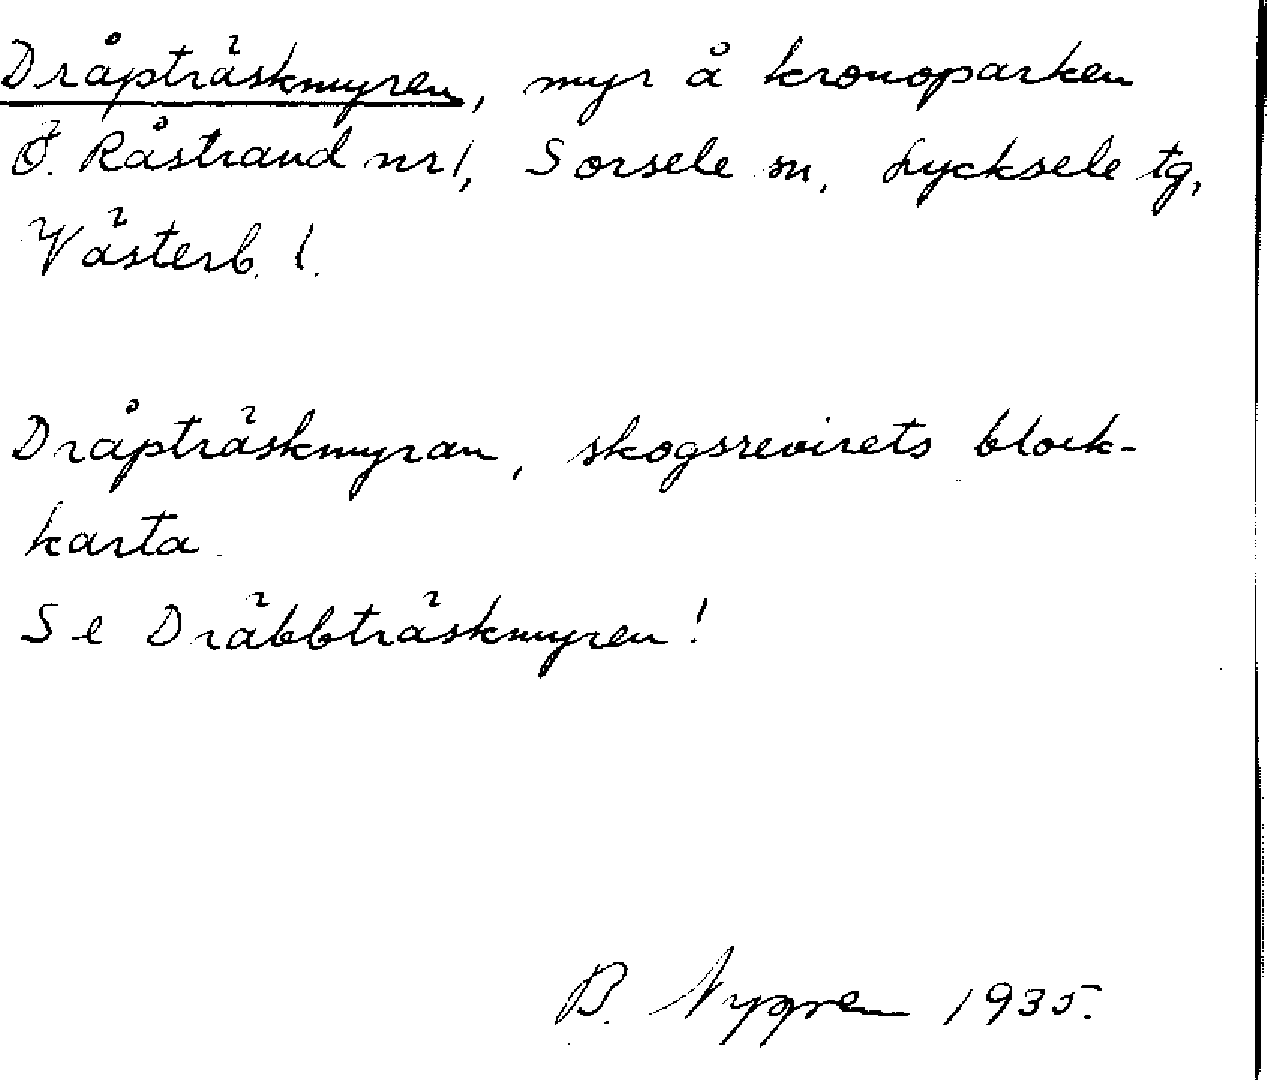 Dråpträskmyren, myr å kronoparken
Ö. Råstrand nr 1, Sorsele sn, Lycksele tg,
Västerb. l.
Dråpträskmyran, skogsrevirets block-
karta.
Se Dräbbträskmyren!
B. Nygren 1935.